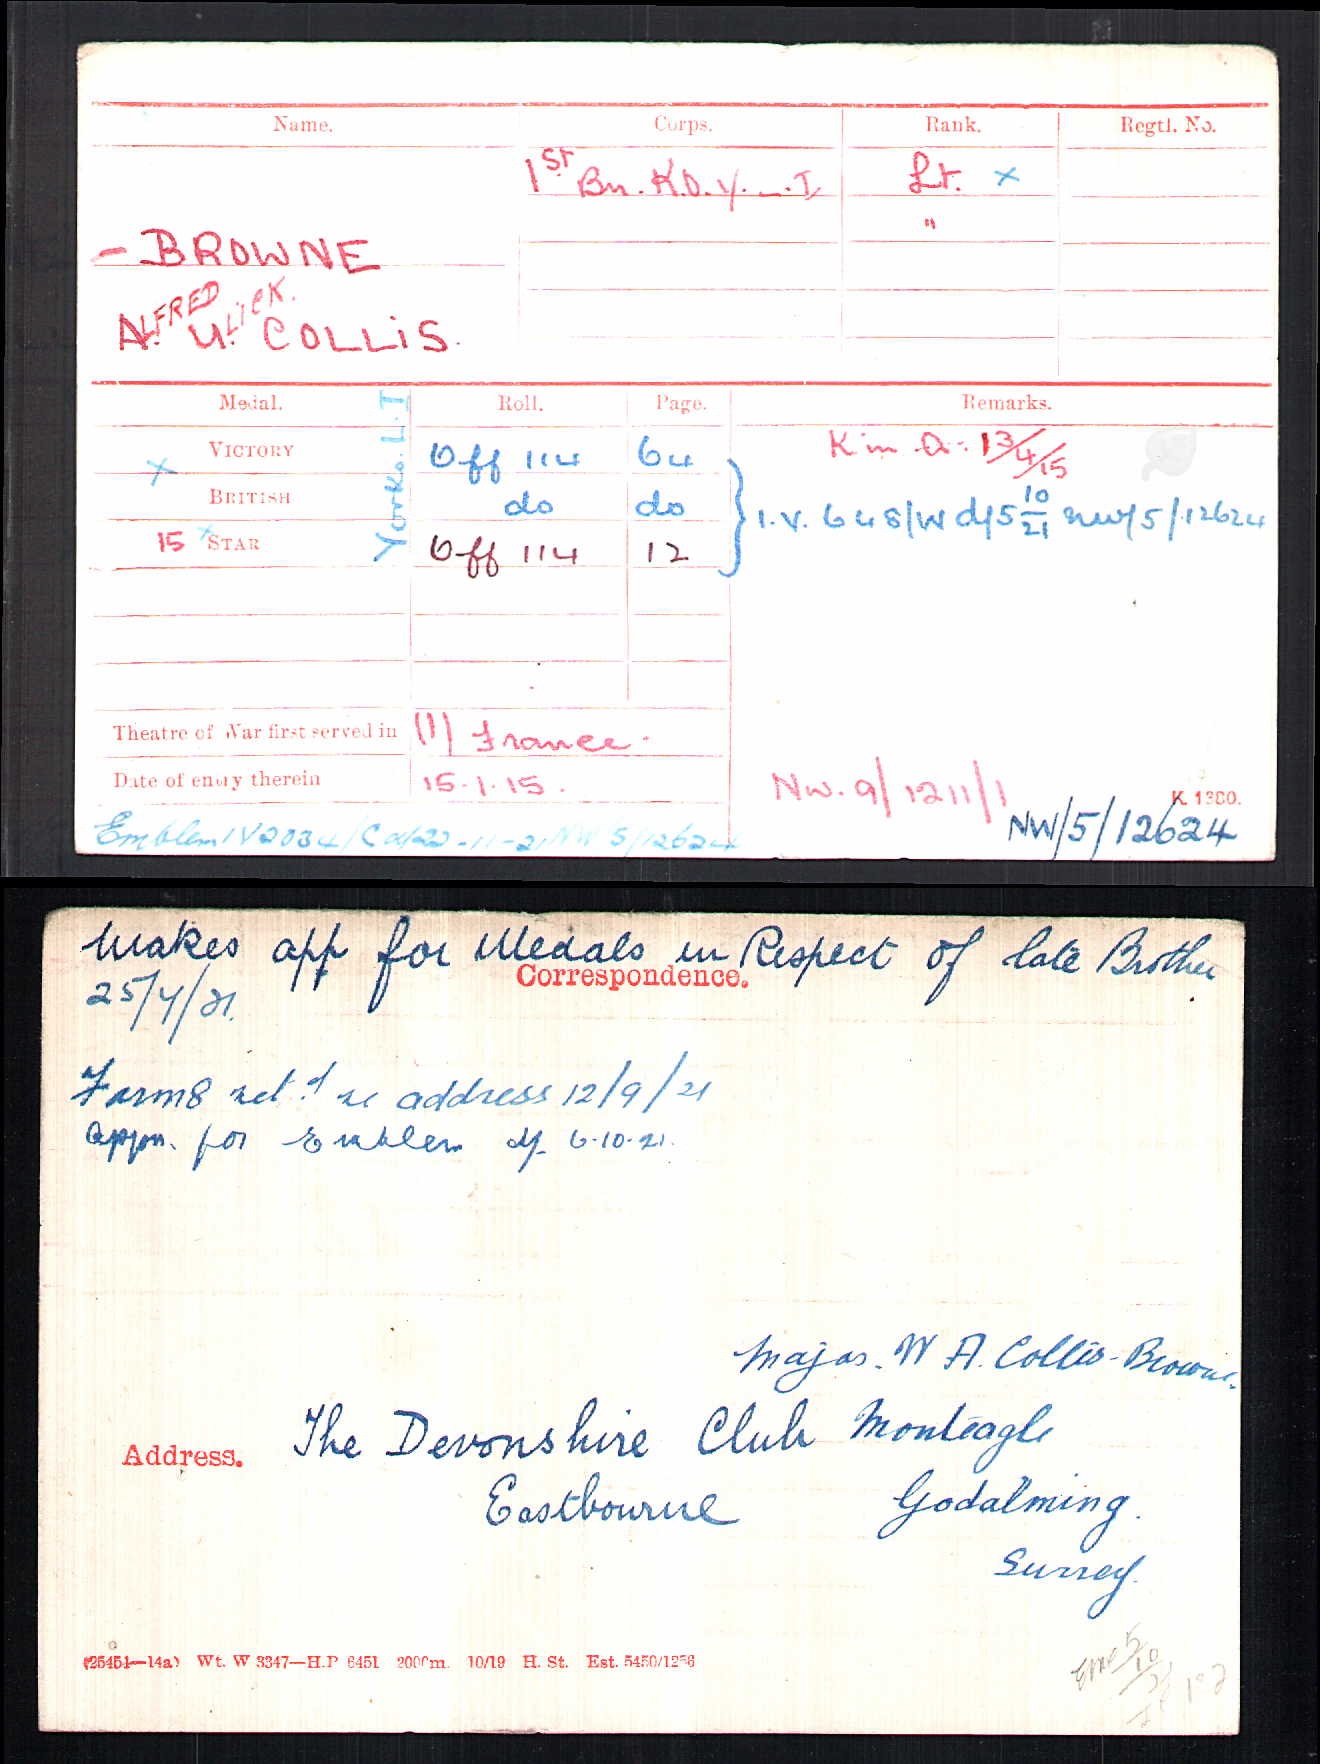 Name. Corps. Rank. Regtl. No.
1st Bn. K.O.Y.L.I Lt. x
"
- BROWNE
ALFRED ULICK COLLIS.
Medal. Roll. Page. Remarks.
Yorks. L.I
VICTORY Off 114 64 K in A: 13/4/15
x
BRITISH do do I.V. 648/W d/5 10/21 NW/5/12624
15 x STAR Off 114 12
Theatre of War first served in (1) France.
Date of entry therein 15.1.15.
NW. 9/1211/1
K. 1380.
NW/5/12624
Emblem IV 2034/C d/22-11-21 NW 5/12624
Makes app for Medals in Respect of late Brother
Correspondence.
25/4/21.
Forms ret.d re address 12/9/21
Appn. for Emblem d/- 6.10.21.
Major. W A. Collis-Browne.
Address. The Devonshire Club Monteagle
Eastbourne Godalming.
Surrey.
(25451—14a) Wt. W 3347—H.P 6451 2000m. 10/19 H. St. Est. 5450/1256